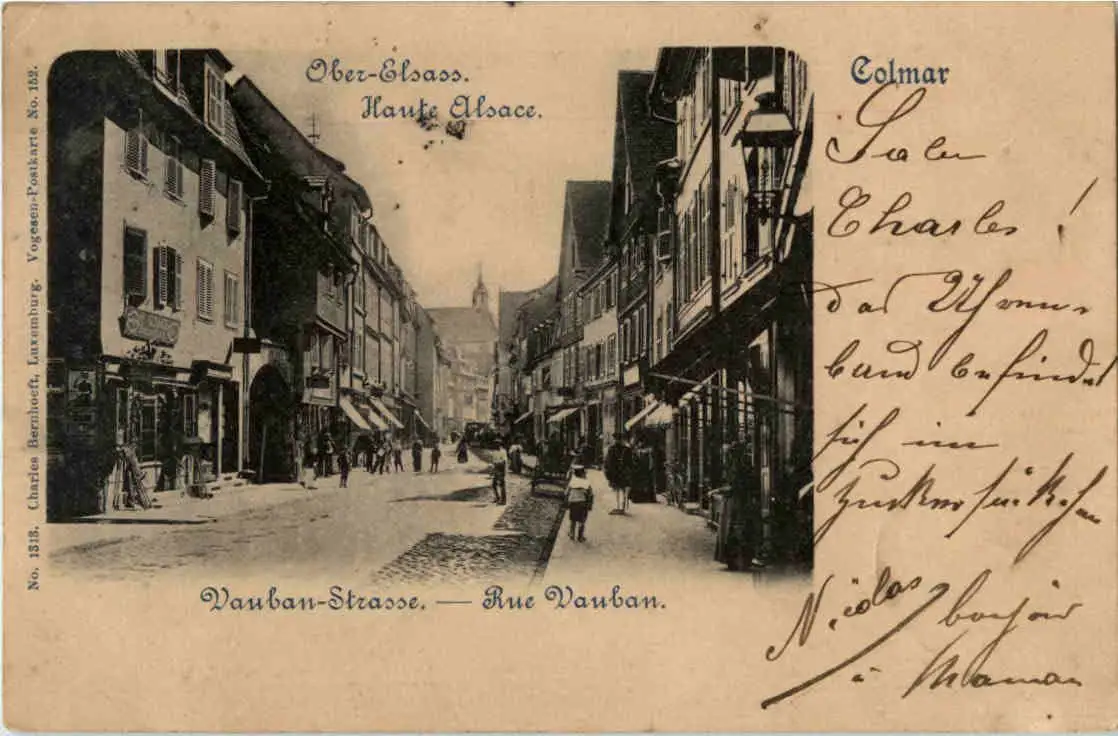 Ober-Elsass.
Haute Alsace.
Colmar
No. 1313. Charles Bernhoeft, Luxemburg. Vogesen-Postkarte No. 152.
Vauban-Strasse. — Rue Vauban.
Charles!
das Uhren-
band befindet
sich im
Nicolas
à Maman